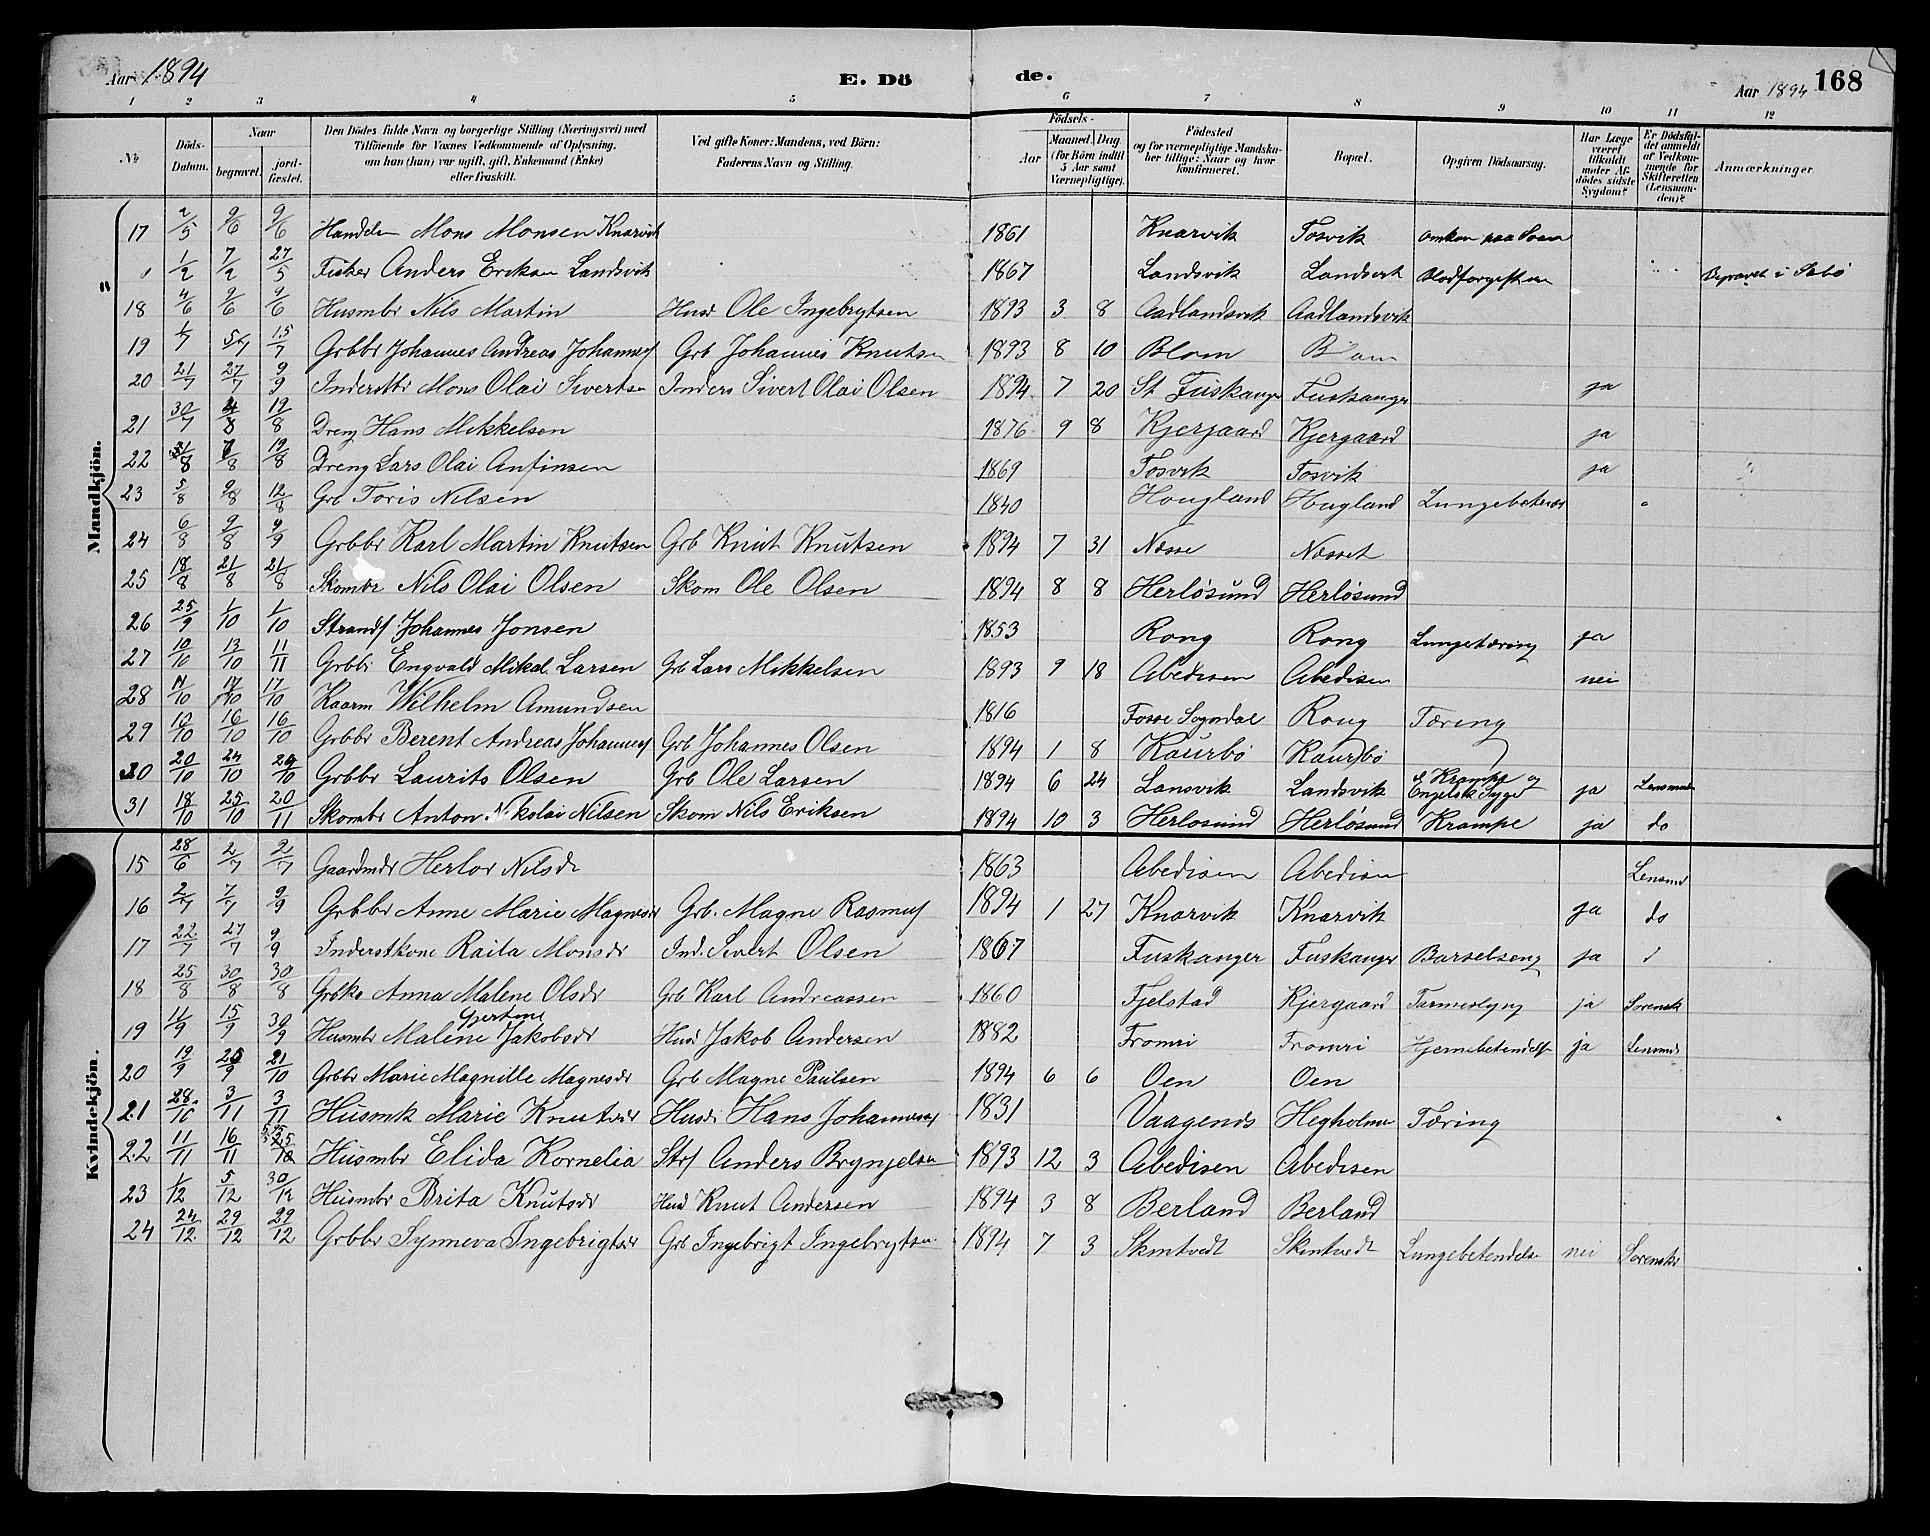 Aar 1894 E. Dö de. Aar 1894 168
1 2 3 4 5 6 7 8 9 10 11 12
No. Döds-Datum. Naar begravet. jordfæstet. Den Dödes fulde Navn og borgerlige Stilling (Næringsvei) med Tilföiende for Voxnes Vedkommende af Oplysning, om han (hun) var ugift, gift, Enkemand (Enke) eller fraskilt. Ved gifte Koner: Mandens, ved Börn: Faderens Navn og Stilling. Födsels- Aar Maaned. Dag. (for Börn indtil 5 Aar samt Værnepligtige). Födested og for værnepligtige Mandskaber tillige: Naar og hvor konfirmeret. Bopæl. Opgiven Dödsaarsag. Har Læge været tilkaldt under Afdödes sidste Sygdom? Er Dödsfaldet anmeldt af Vedkommende for Skifteretten (Lensmanden)? Anmærkninger
Mandkjön.
17 2/5 9/6 9/6 Handelsm Mons Monsen Knarvik 1861 Knarvik Fosvik omkom paa Søen
" 1/2 7/2 27/5 Fisker Anders Eriksen Landsvik 1867 Landsvik Landsvik Blodforgiftn Begravet i Sæbø
18 4/6 9/6 9/6 Husmbr Nils Martin Husd Ole Ingebrytsen 1893 3 8 Aadlandsvik Aadlandsvik
19 1/7 5/7 15/7 Grbbr Johannes Andreas Johannes Grb Johannes Knutsen 1893 8 10 Blom Blom
20 21/7 27/7 9/9 Inderstbr Mons Olai Sivertsen Inders Sivert Olai Olsen 1894 7 20 St Fuskanger Fuskanger ja
21 30/7 4/8 19/8 Dreng Hans Mikkelsen 1876 9 8 Kjergaard Kjergaard ja
22 31/8 7/8 19/8 Dreng Lars Olai Anfinsen 1869 Fosvik Fosvik ja
23 5/8 9/8 12/8 Grb Toris Nilsen 1840 Hougland Hugland Lungebetænd
24 6/8 9/8 9/9 Grbbr Karl Martin Knutsen Grb Knut Knutsen 1894 7 31 Nesse Nesset
25 18/8 21/8 21/8 Skombr Nils Olai Olsen Skom Ole Olsen 1894 8 8 Herløsund Herløsund
26 25/9 1/10 1/10 Strands Johannes Jonsen 1853 Rong Rong Lungetæring ja
27 10/10 13/10 11/11 Grbbr Engvald Mikal Larsen Grb Lars Mikkelsen 1893 9 18 Abedisen Abedisen nei
28 11/10 17/10 17/10 Kaarm Wilhelm Amundsen 1816 Fosse Sogndal Rong Tæring
29 12/10 16/10 16/10 Grbbr Berent Andreas Johannes Grb Johannes Olsen 1894 1 8 Kaurbø Kaurbø
30 20/10 24/10 24/10 Grbbr Laurits Olsen Grb Ole Larsen 1894 6 24 Lansvik Landsvik Krampe og Engelsk Syge ja Lensmd
31 18/10 25/10 20/11 Skombr Anton Nikolai Nilsen Skom Nils Eriksen 1894 10 3 Herløsund Herløsund Krampe ja do
Kvindekjön.
15 28/6 2/7 2/7 Gaardmdr Herlov Nilsdr 1863 Abedisen Abedisen Lensmd
16 2/7 7/7 9/9 Grbbr Anne Marie Magnesdr Grb. Magne Rasmus 1894 1 27 Knarvik Knarvik ja do
17 22/7 27/7 9/9 Inderstkone Raita Monsdr Ind. Sivert Olsen 1867 Fuskanger Fuskanger Barselseng ja
18 25/8 30/8 30/8 Grbko Anna Malene Olsdr Grb Karl Andreassen 1860 Fjelstad Kjergaard Tarmeslyng ja Sorensk
19 11/9 15/9 30/9 Husmbr Malene Gjertine Jakobsdr Husd Jakob Andersen 1882 Fromri Fromri Hjernebetendels ja Lensmd
20 19/9 25/9 21/10 Grbbr Marie Magnille Magnesdr Grb Magne Paulsen 1894 6 6 Oen Oen
21 28/10 3/11 3/11 Husmk Marie Knutsdr Husd Hans Johannes 1831 Vaagenes Hegholmen Tæring
22 11/11 16/11 Husmbr Elida Kornelia Strs Anders Brynjelsen 1893 12 3 Abedisen Abedisen
23 1/12 5/12 30/12 Husmbr Brita Knutsdr Husd Knut Andersen 1894 3 8 Berland Berland
24 24/12 29/12 29/12 Grbbr Synneva Ingebrigtsdr Grb Ingebrigt Ingebrytsen 1894 7 3 Skintvedt Skintvedt Lungebetendelse nei Sorenskr